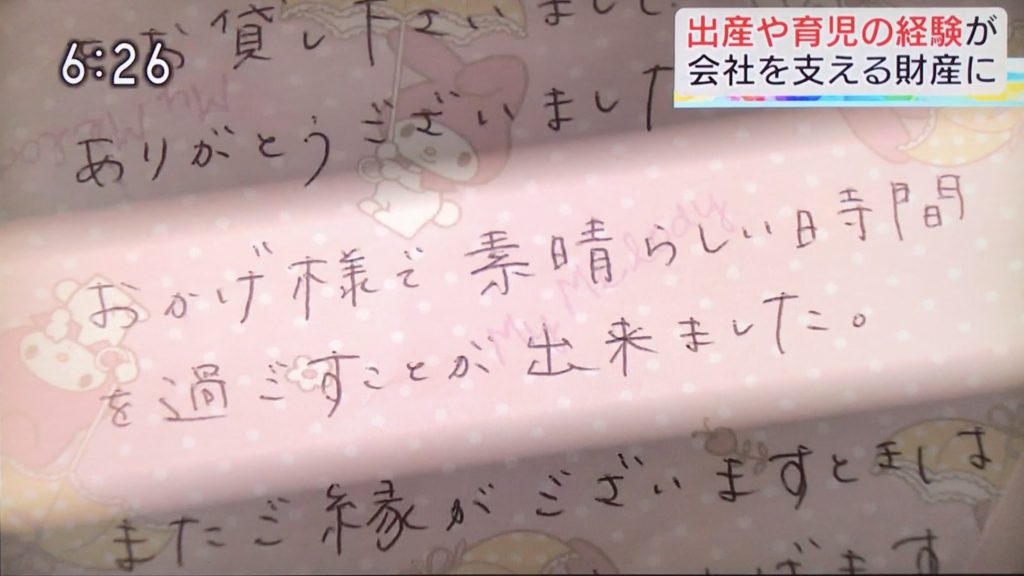 6:26
出産や育児の経験が
会社を支える財産に
お貸し下さいまして
ありがとうございました
おかげ様で素晴らしい時間
を過ごすことが出来ました。
またご縁がございますとましは
ます
My Melody